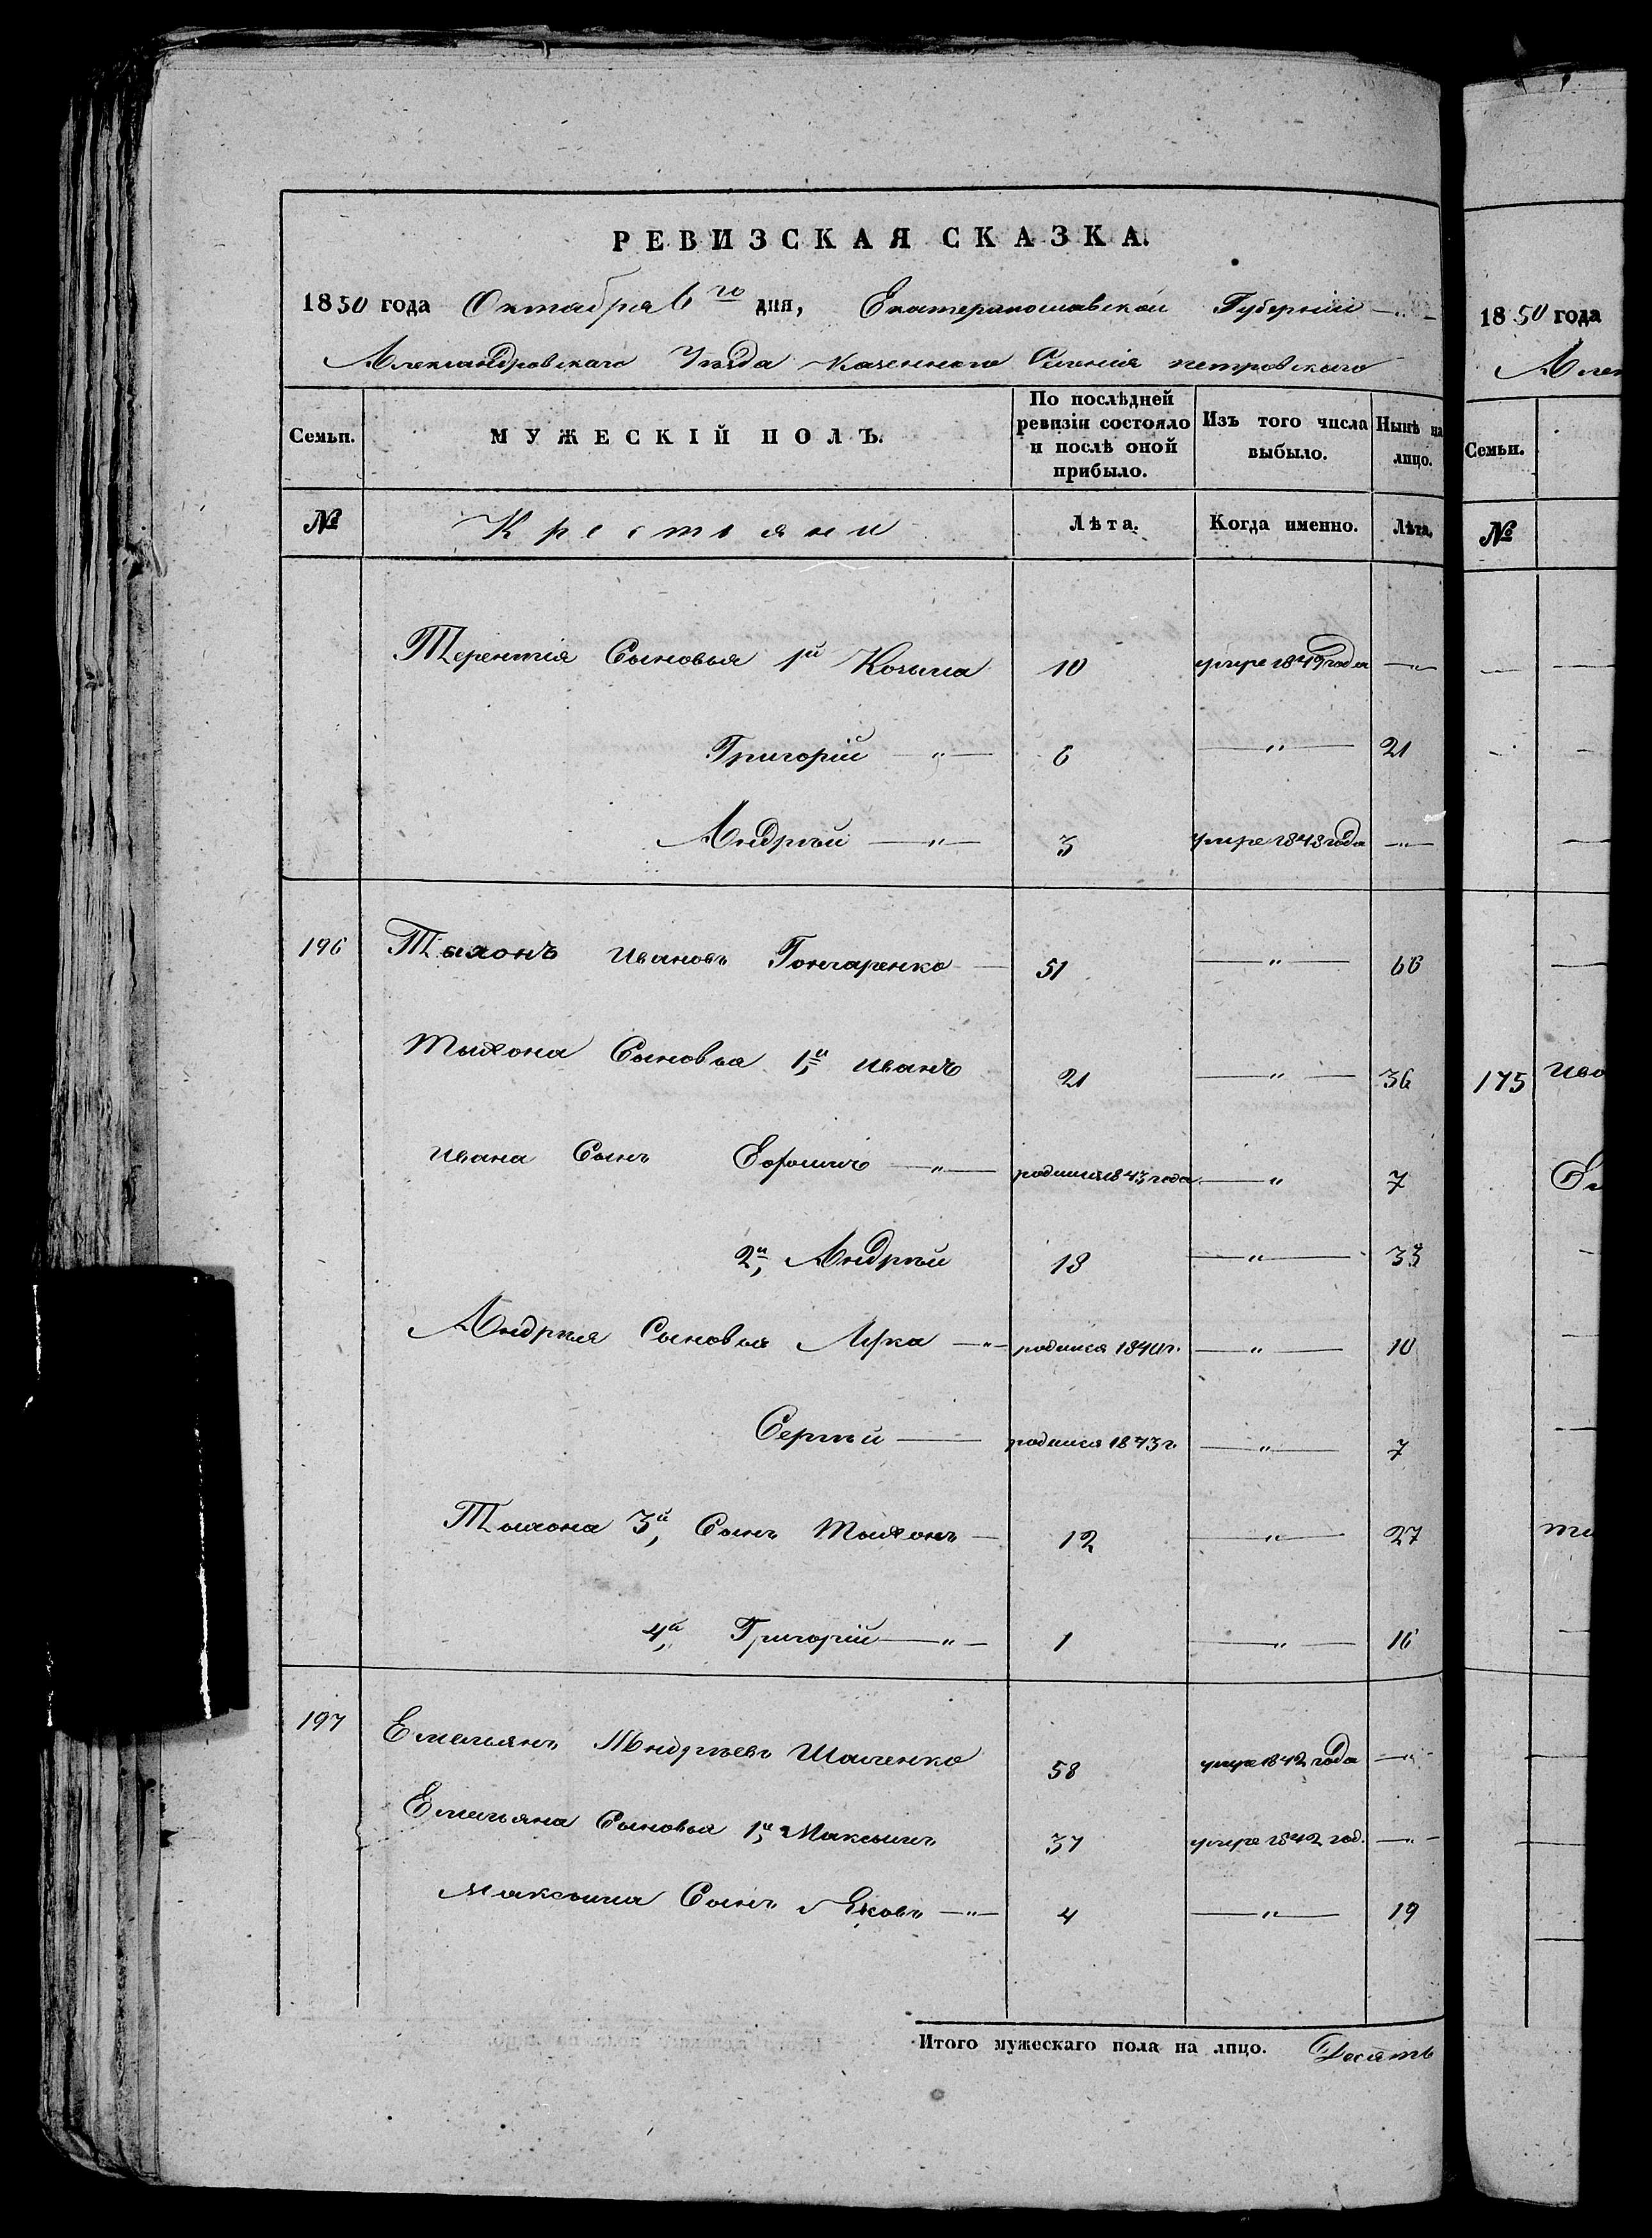 РЕВИЗСКАЯ СКАЗКА.
1850 года Октября 6го дня, Екатеринославской Губерніи
Александровскаго Уѣзда Казенного Селенія петровскаго
Семьи. МУЖЕСКІЙ ПОЛЪ. По послѣдней ревизіи состояло и послѣ оной прибыло. Изъ того числа выбыло. Нынѣ на лицо.
№ Крестьяни Лѣта. Когда именно. Лѣта.
Терентія Сыновья 1й Козьма 10 умре 1849 года —"—
Григорій —"— 6 —"— 21
Андрѣй —"— 3 умре 1848 года —"—
196 Тыхонъ Ивановъ Гончаренко — 51 —"— 66
Тыхона Сыновья 1й Иванъ 21 —"— 36
Ивана Сынъ —"— родился 1843 года —"— 7
2й, Андрѣй 18 —"— 33
Андрѣя Сыновья —"— родился 1840 г. —"— 10
Сергѣй — родился 1843 г. —"— 7
Тыхона 3й, Сынъ Тыхонъ — 12 —"— 27
4й, Григорій —"— 1 —"— 16
197 Емельянъ Андрѣевъ 58 умре 1842 года —"—
Емельяна Сыновья 1й, Максымъ 37 умре 1842 год. —"—
Максыма Сынъ Яковъ —"— 4 —"— 19
Итого мужескаго пола на лицо. Десять
1850 года
Семьи.
№
175